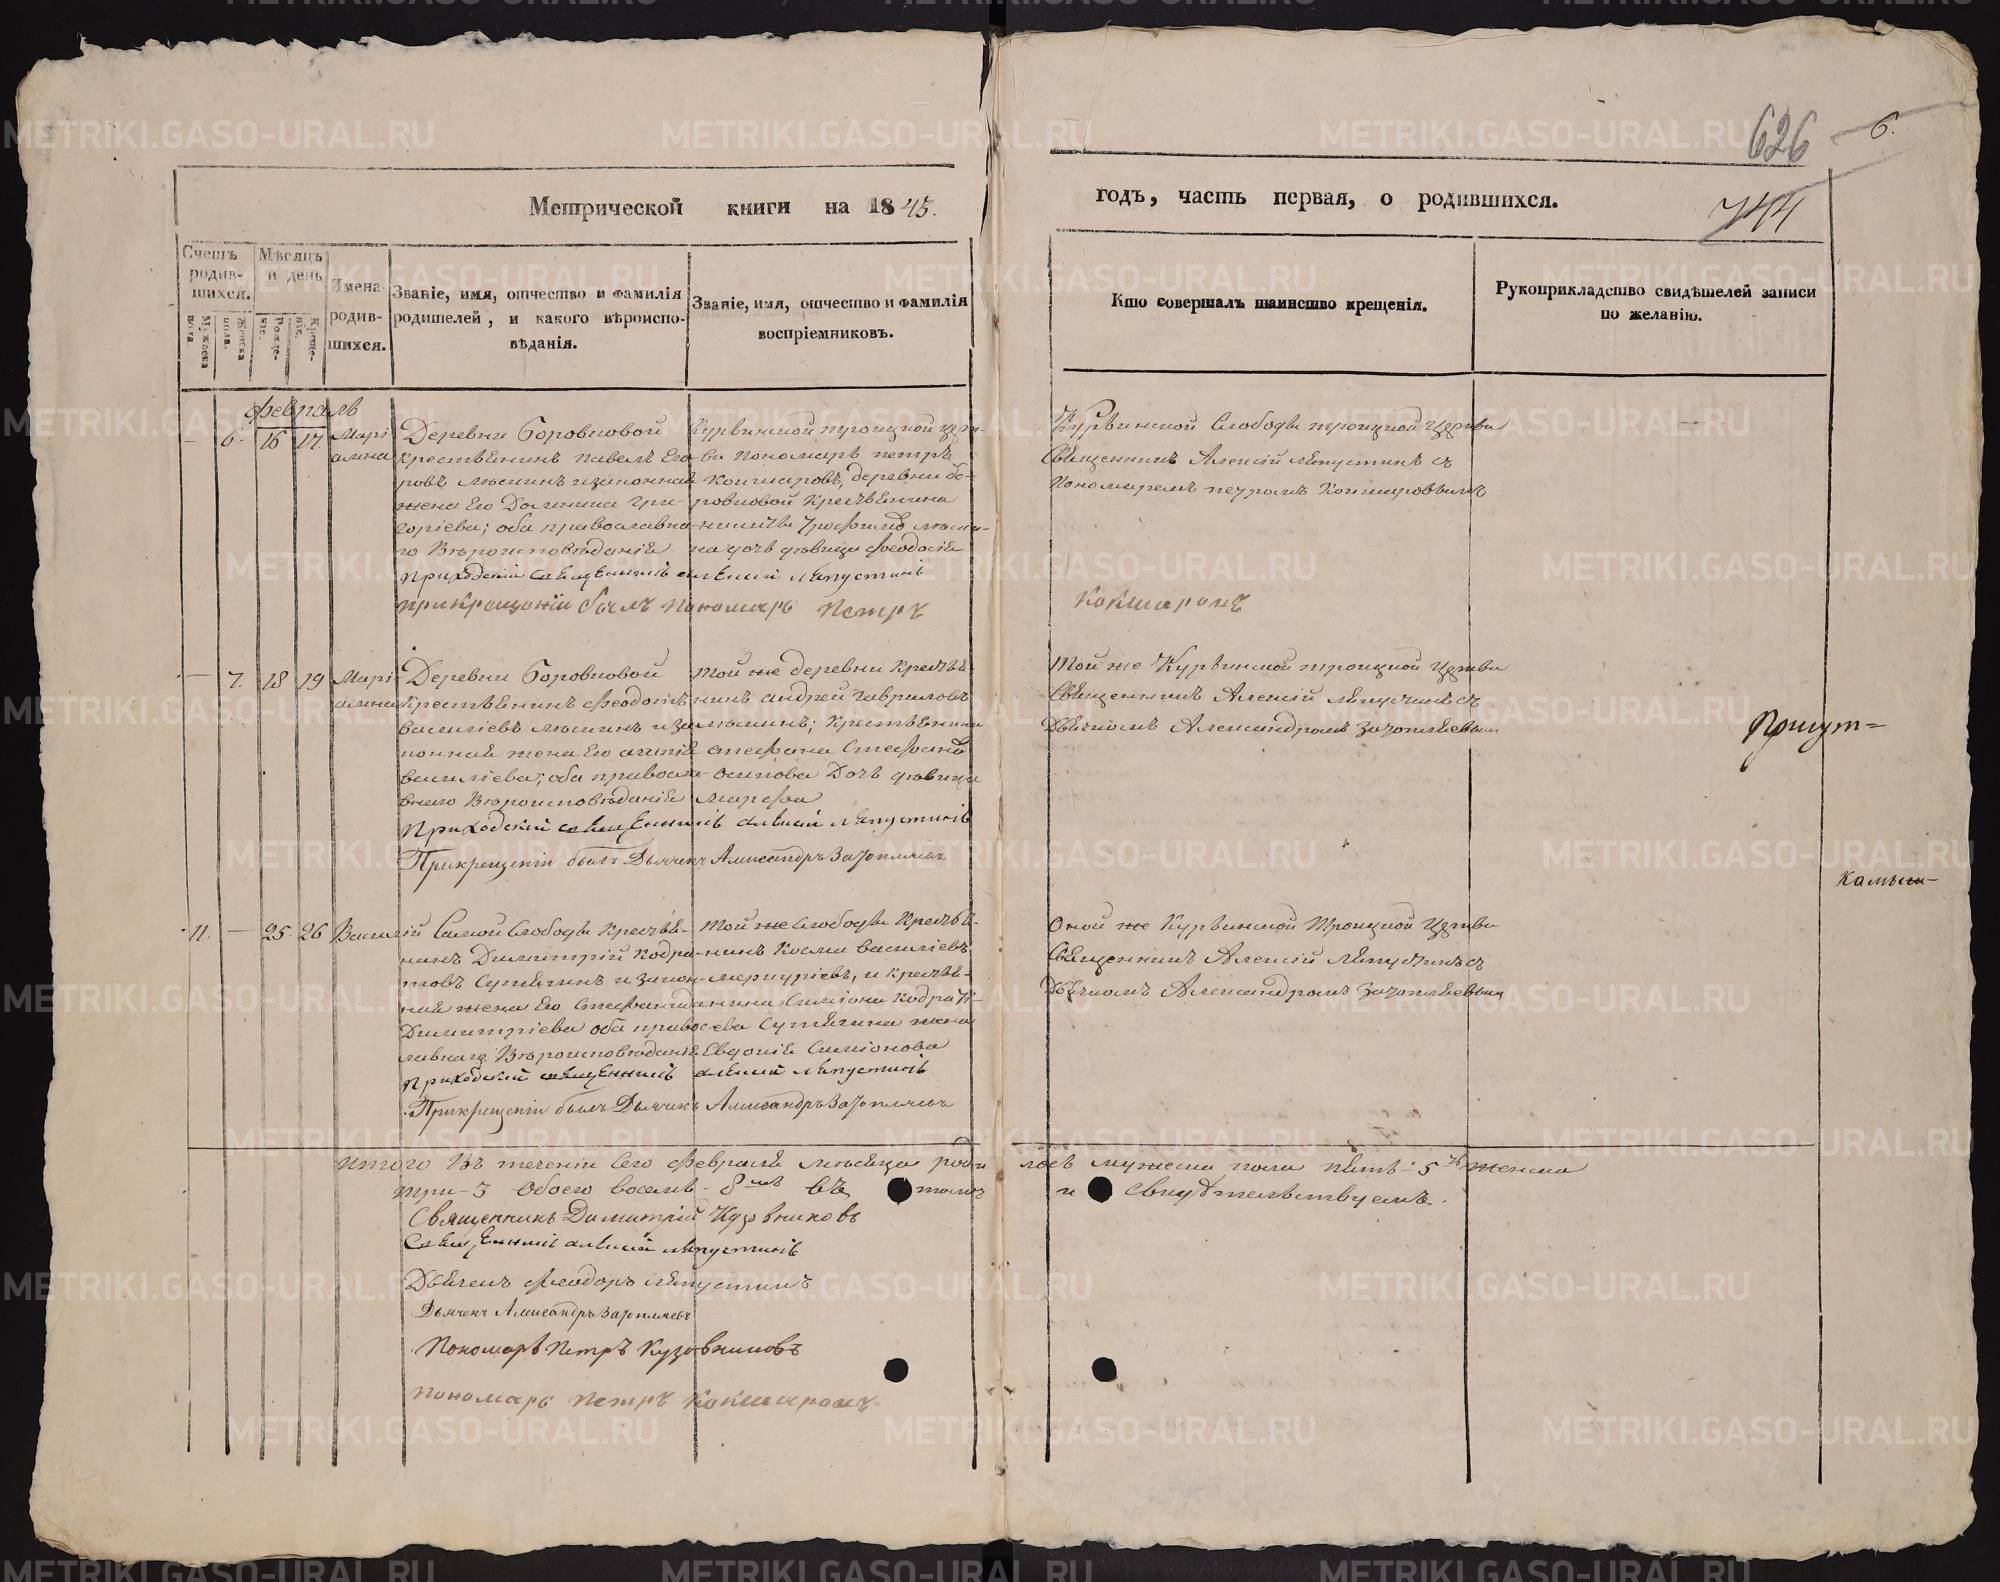 626
6.
744
Метрической книги на 1845.
годъ, часть первая, о родившихся.
Счетъ родив-шихся.
Мужеска пола.
Женска пола.
Мѣсяцъ и день
Рожде-ніе.
Креще-ніе.
Имена родив-шихся.
Званіе, имя, отчество и фамилія родителей, и какого вѣроиспо-вѣданія.
Званіе, имя, отчество и фамилія воспріемниковъ.
Кто совершалъ таинство крещенія.
Рукоприкладство свидѣтелей записи по желанію.
февраль
— 6. 16 17. Марі
амна
Деревни Боровиковой
крестьянинъ Павелъ Его
ровъ изаконная
жена Его Домника Гри-
горіева; оба православна
го Вѣроисповѣданія
Приходскій священникъ Алексій Лепустинъ
При Крещеніи былъ Пономарь Петръ
троицкой церк-
ви пономарь петръ
Кокшаровъ, деревни бо-
ровиковой Крестьянина
дочь дѣвица Феодосія
Слободы троицкой церкви
Священникъ Алексій Лепустинъ съ
Пономаремъ петромъ Кокшаровымъ
Кокшаровъ
— 7. 18 19 Марі
амна
Деревни Боровиковой
Крестьянинъ Феодотъ
васильевъ иза
конная жена его
васильева; оба правосла
внаго Вѣроисповѣданія
Приходскій священникъ Алексій Лепустинъ
При крещеніи былъ Дьячекъ Александръ
той же деревни крестья
нинъ андрей гавриловъ
крестьянина
стефана
Осипова Дочь дѣвица
Марфа
той же троицкой церкви
Священникъ Алексій Лепустинъ съ
Дьячкомъ Александромъ
Присут=
Камыш-
11. — 25. 26 Василій
Самой Слободы крестья-
нинъ Димитрій Кодра-
товъ и закон
ная жена Его Стефанида
Димитріева оба право
славнаго Вѣроисповѣданія
Приходскій священникъ Алексій Лепустинъ
При крещеніи былъ Дьячекъ Александръ
той же слободы крестья-
нинъ Косма васильевъ
меркуріевъ, и крестья-
нина Симіона Кодрать-
ева жена
Евдокія Симіонова
Оной же Троицкой церкви
Священникъ Алексій Лепустинъ съ
Дьячкомъ Александромъ
Итого Въ теченіи Сего Февраля мѣсяца роди лось мужеска пола пять - 5 женска
три - 3 Обоего восемь - 8 въ томъ и свидѣтельствуемъ.
Священникъ Димитрій Кузовниковъ
Священникъ Алексій Лепустинъ
Дьячекъ Феодоръ Лепустинъ
Дьячекъ Александръ
Пономарь Петръ Кузовниковъ
пономарь Петръ Кокшаровъ
METRIKI.GASO-URAL.RU